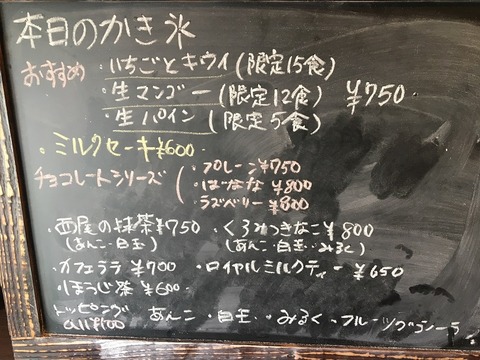 本日のかき氷
おすすめ ・いちごとキウイ (限定15食)
・生マンゴー (限定12食) ¥750
・生パイン (限定5食)
・ミルクセーキ¥600
チョコレートシリーズ ( ・プレーン¥750
・ばなな ¥800
・ラズベリー¥800
・西尾の抹茶¥750 ・くろみつきなこ¥800
(あんこ・白玉) (あんこ・白玉・みるく)
・カフェララ ¥700 ・ロイヤルミルクティー ¥650
・ほうじ茶 ¥600
トッピング all¥100 あんこ ・白玉・みるく・フルーツグラノーラ